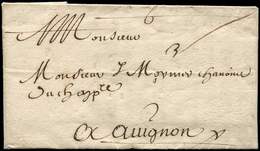 Monsieur
Monsieur Moynier chanoine
Du chapp^re
a Auignon